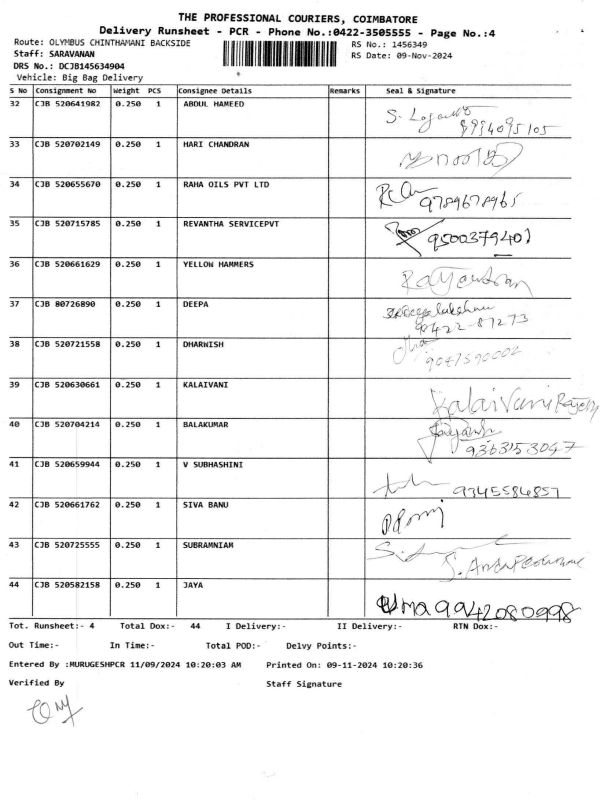 THE PROFESSIONAL COURIERS, COIMBATORE
Delivery Runsheet - PCR - Phone No.:0422-3505555 - Page No.:4
Route: OLYMBUS CHINTHAMANI BACKSIDE RS No.: 1456349
Staff: SARAVANAN RS Date: 09-Nov-2024
DRS No.: DCJB145634904
Vehicle: Big Bag Delivery
S No Consignment No Weight PCS Consignee Details Remarks Seal & Signature
32 CJB 520641982 0.250 1 ABDUL HAMEED
33 CJB 520702149 0.250 1 HARI CHANDRAN
34 CJB 520655670 0.250 1 RAHA OILS PVT LTD 9789678965
35 CJB 520715785 0.250 1 REVANTHA SERVICEPVT 9500379401
36 CJB 520661629 0.250 1 YELLOW HAMMERS
37 CJB 80726890 0.250 1 DEEPA 90422-87273
38 CJB 520721558 0.250 1 DHARWISH
39 CJB 520630661 0.250 1 KALAIVANI Kalaivani
40 CJB 520704214 0.250 1 BALAKUMAR 9363153047
41 CJB 520659944 0.250 1 V SUBHASHINI 9345584857
42 CJB 520661762 0.250 1 SIVA BANU
43 CJB 520725555 0.250 1 SUBRAMNIAM
44 CJB 520582158 0.250 1 JAYA Uma 9942080998
Tot. Runsheet:- 4 Total Dox:- 44 I Delivery:- II Delivery:- RTN Dox:-
Out Time:- In Time:- Total POD:- Delvy Points:-
Entered By :MURUGESHPCR 11/09/2024 10:20:03 AM Printed On: 09-11-2024 10:20:36
Verified By Staff Signature